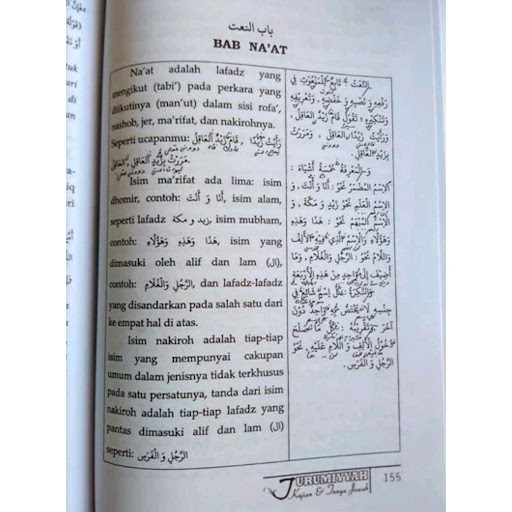 باب النعت
BAB NA'AT
Na'at adalah lafadz yang
mengikut (tabi') pada perkara yang
diikutinya (man'ut) dalam sisi rofa',
nashob, jer, ma'rifat, dan nakirohnya.
Seperti ucapanmu: قَامَ زَيْدٌ الْعَاقِلُ، رَأَيْتُ زَيْدًا
الْعَاقِلَ، مَرَرْتُ بِزَيْدٍ الْعَاقِلِ
Isim ma'rifat ada lima: isim
dhomir, contoh: أَنَا وَ أَنْتَ, isim alam,
seperti lafadz زيد و مكة, isim mubham,
contoh: هَذَا، وَهَذِهِ، وَهَؤُلَاءِ, isim yang
dimasuki oleh alif dan lam (ال)
contoh: الرَّجُلُ وَالْغُلَامُ, dan lafadz-lafadz
yang disandarkan pada salah satu dari
ke empat hal di atas.
Isim nakiroh adalah tiap-tiap
isim yang mempunyai cakupan
umum dalam jenisnya tidak terkhusus
pada satu persatunya, tanda dari isim
nakiroh adalah tiap-tiap lafadz yang
pantas dimasuki alif dan lam (ال)
seperti: الرَّجُلِ وَ الْفَرَسِ
النَّعْتُ تَابِعٌ لِلْمَنْعُوتِ فِي
رَفْعِهِ وَ نَصْبِهِ وَ خَفْضِهِ، وَتَعْرِيفِهِ
وَتَنْكِيرِهِ، تَقُولُ قَامَ زَيْدٌ الْعَاقِلُ،
وَرَأَيْتُ زَيْدًا الْعَاقِلَ، وَمَرَرْتُ
بِزَيْدٍ الْعَاقِلِ.
وَالْمَعْرِفَةُ خَمْسَةُ أَشْيَاءَ:
الِاسْمُ الْمُضْمَرُ نَحْوُ: أَنَا وَ أَنْتَ، وَ
الِاسْمُ الْعَلَمُ نَحْوُ: زَيْدٍ وَ مَكَّةَ، وَ
الِاسْمُ الْمُبْهَمُ نَحْوُ: هَذَا وَهَذِهِ
وَهَؤُلَاءِ، وَ الِاسْمُ الَّذِي فِيهِ الْأَلِفُ
وَاللَّامُ نَحْوُ: الرَّجُلُ وَ الْغُلَامُ، وَمَا
أُضِيفَ إِلَى وَاحِدٍ مِنْ هَذِهِ الْأَرْبَعَةِ
وَالنَّكِرَةُ: كُلُّ اسْمٍ شَائِعٍ فِي
جِنْسِهِ لَا يَخْتَصُّ بِهِ وَاحِدٌ دُونَ
آخَرَ، وَتَقْرِيبُهُ: كُلُّ مَا صَلَحَ
دُخُولُ الْأَلِفِ وَ اللَّامِ عَلَيْهِ، نَحْوُ
الرَّجُلِ وَ الْفَرَسِ
JURUMIYYAH
Kajian & Tanya Jawab
155